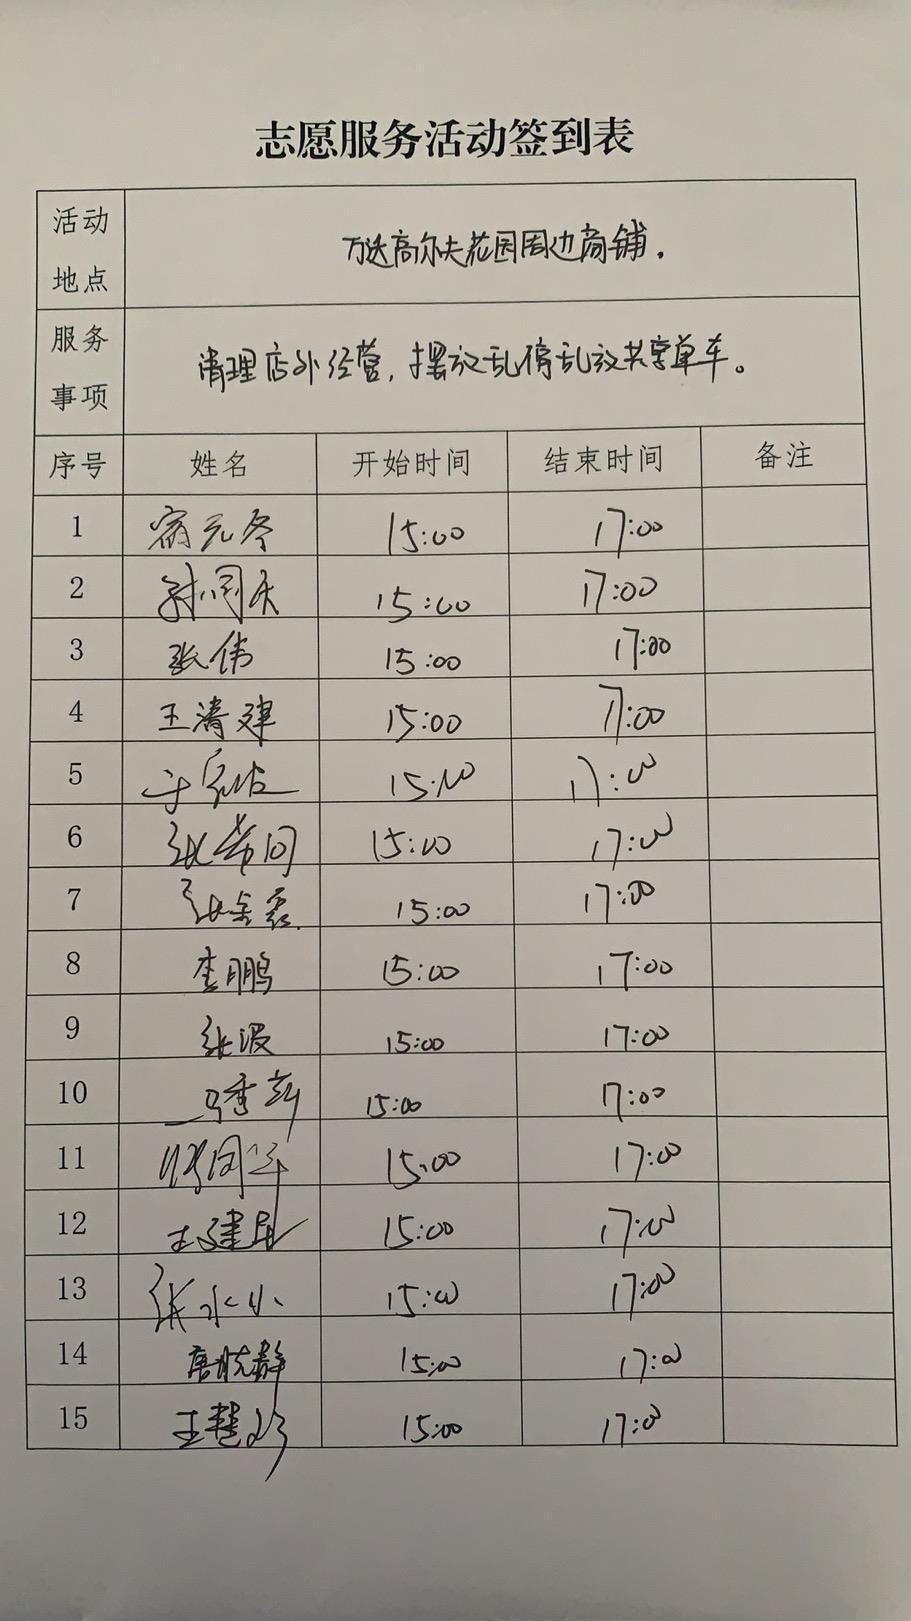 志愿服务活动签到表
活动地点 万达高尔夫花园周边商铺.
服务事项 清理店外经营,摆放乱停乱放共享单车。
序号 姓名 开始时间 结束时间 备注
1 宿元冬 15:00 17:00
2 孙同庆 15:00 17:00
3 张伟 15:00 17:00
4 王清建 15:00 17:00
5 15:00 17:00
6 15:00 17:00
7 15:00 17:00
8 李鹏 15:00 17:00
9 张波 15:00 17:00
10 15:00 17:00
11 15:00 17:00
12 王建 15:00 17:00
13 张 15:00 17:00
14 唐晓静 15:00 17:00
15 王慧 15:00 17:00